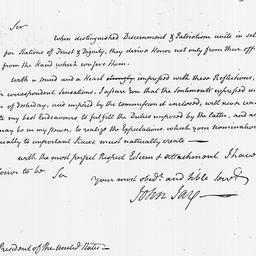 Sir
When distinguished Discernment & Patriotism unite in sel
for Stations of Trust & Dignity, they derive Honor not only from their off
from the Hand which confers them.
With a Mind and a Heart strongly impressed with these Reflections,
correspondent Sensations, I assure you that the Sentiments expressed
of Yesterday, and implied by the commission it enclosed, will never cea
my best Endeavours to fulfill the Duties imposed by the latter, and as
may be in my power, to realize the Expectations which your nomination
cially to important Place must naturally create —
with the most perfect Respect Esteem & attachment I have
to be Sir
your most obedt. and hble Servt
John Jay —
President of the united States —